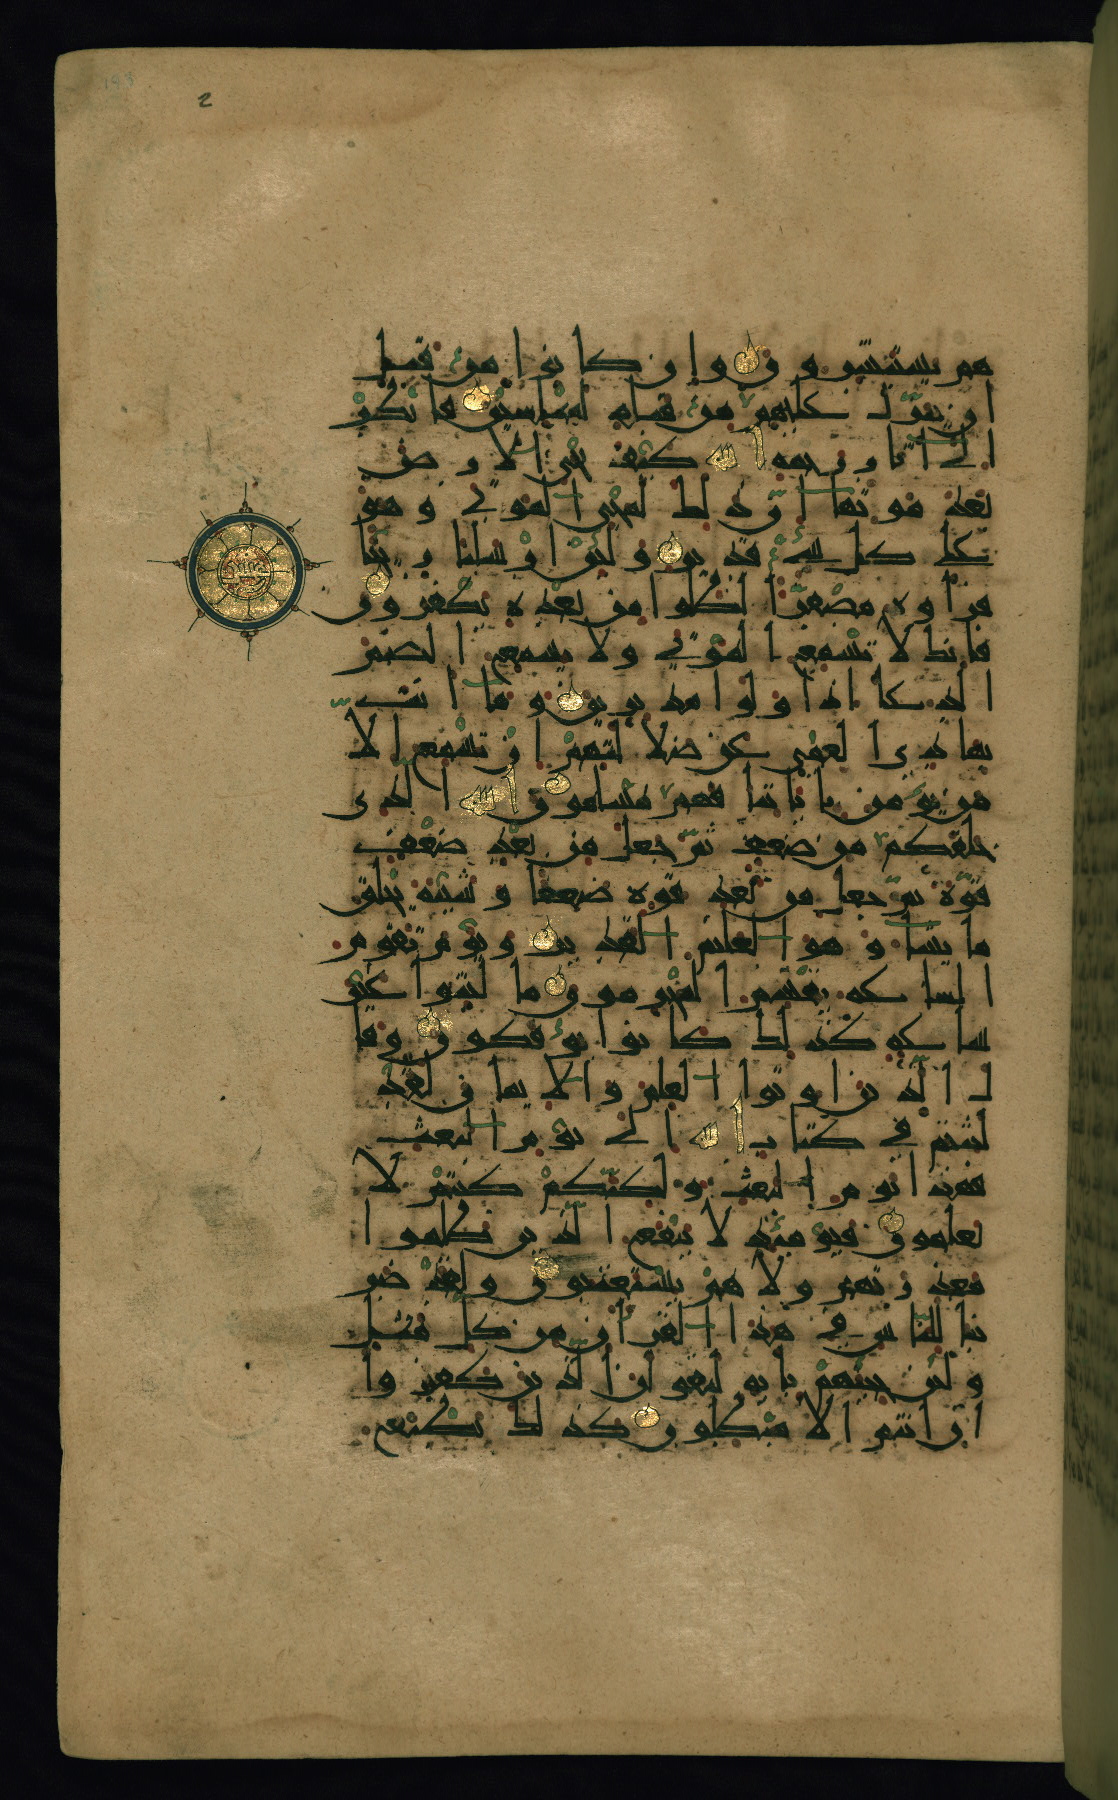 2
هم يستبشرون وإن كانوا من قبل
أن ينزل عليهم من قبله لمبلسين فانظر
إلى آثار رحمة الله كيف يحي الأرض
بعد موتها إن ذلك لمحي الموتى وهو
على كل شيء قدير ولئن أرسلنا ريحا
فرأوه مصفرا لظلوا من بعده يكفرون
فإنك لا تسمع الموتى ولا يسمع الصم
الدعاء إذا ولوا مدبرين وما أنت
بهادي العمي عن ضلالتهم إن تسمع إلا
من يؤمن بآياتنا فهم مسلمون الله الذي
خلقكم من ضعف ثم جعل من بعد ضعف
قوة ثم جعل من بعد قوة ضعفا وشيبة يخلق
ما يشاء وهو العليم القدير ويوم تقوم
الساعة يقسم المجرمون ما لبثوا غير
ساعة كذلك كانوا يؤفكون وقا
ل الذين أوتوا العلم والإيمان لقد
لبثتم في كتاب الله إلى يوم البعث
فهذا يوم البعث ولكنكم كنتم لا
تعلمون فيومئذ لا ينفع الذين ظلموا
معذرتهم ولا هم يستعتبون ولقد ضر
بنا للناس في هذا القرآن من كل مثل
ولئن جئتهم بآية ليقولن الذين كفروا
إن أنتم إلا مبطلون كذلك يطبع